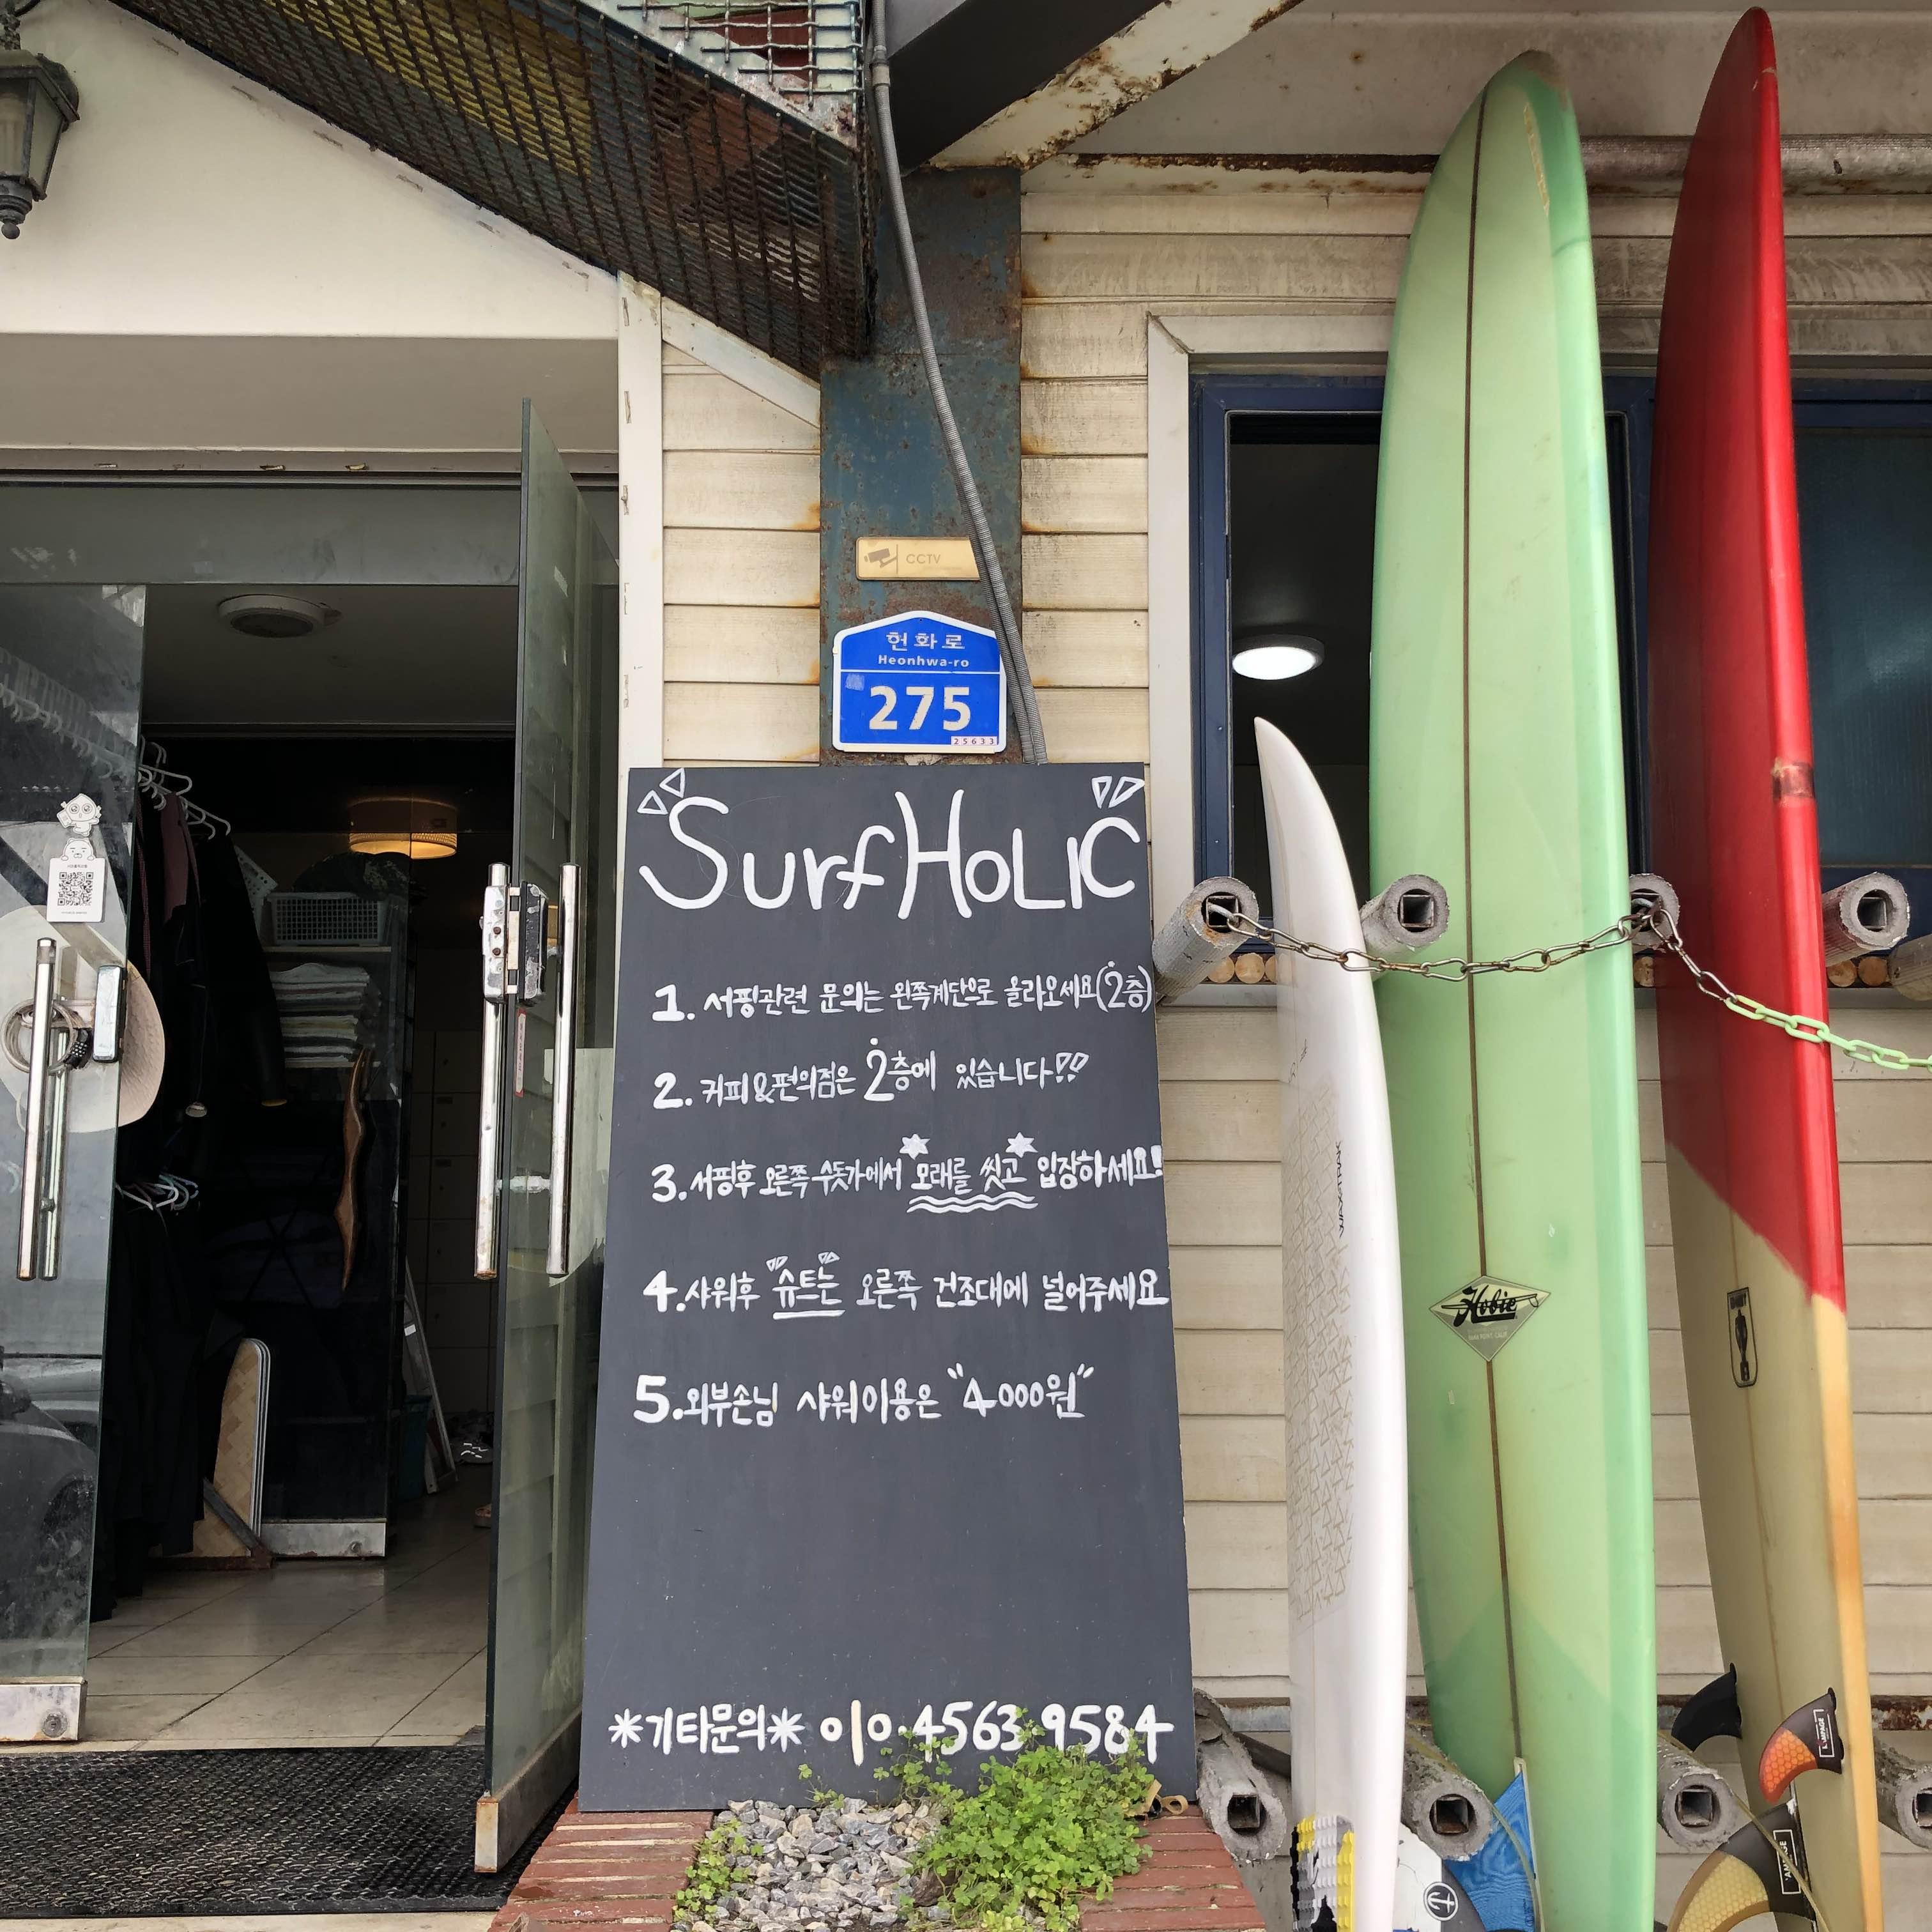 CCTV
헌화로
Heonhwa-ro
275
25633
SurfHoLIC
1. 서핑관련 문의는 왼쪽계단으로 올라오세요(2층)
2. 커피&편의점은 2층에 있습니다!!
3. 서핑후 오른쪽 수돗가에서 모래를 씻고 입장하세요!
4. 샤워후 슈트는 오른쪽 건조대에 널어주세요
5. 외부손님 샤워이용은 "4000원"
*기타문의* 010.4563.9584
Hobie